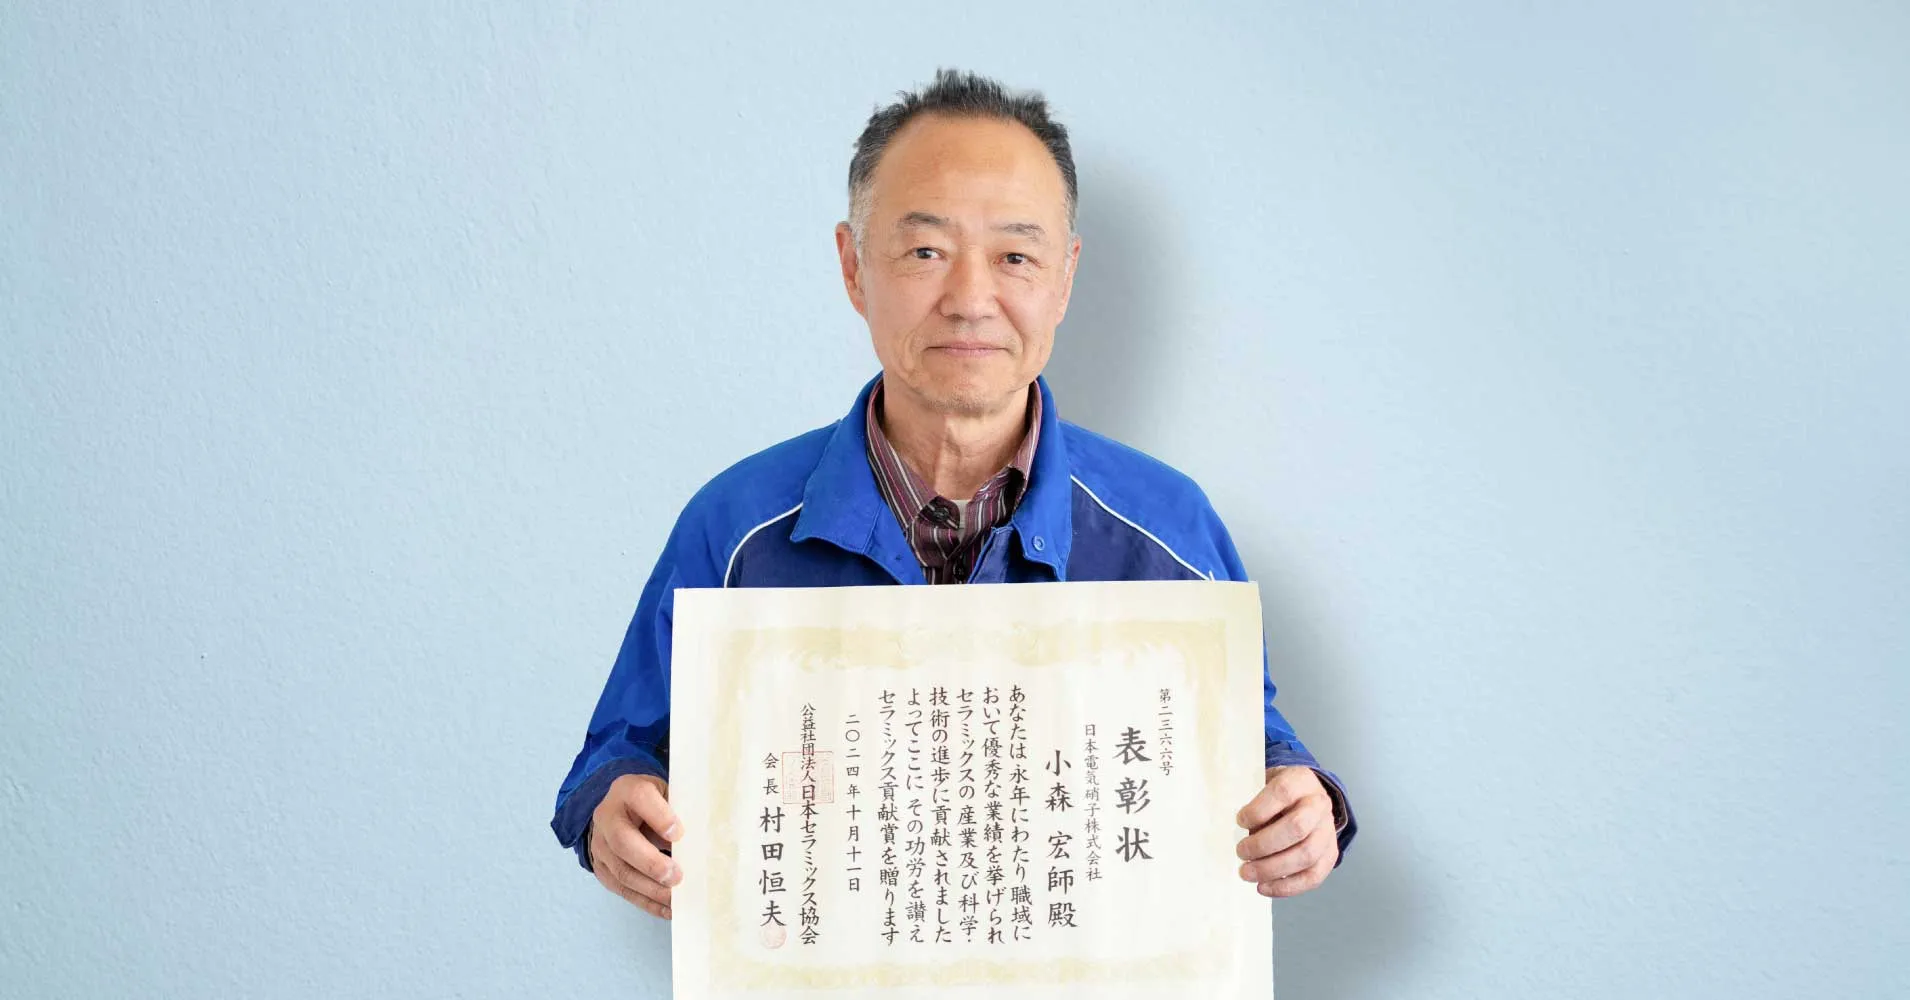 第二三六六号
表彰状
日本電気硝子株式会社
小森 宏師殿
あなたは永年にわたり職域に
おいて優秀な業績を挙げられ
セラミックスの産業及び科学・
技術の進歩に貢献されました
よってここに その功労を讃え
セラミックス貢献賞を贈ります
二〇二四年十月十一日
公益社団法人日本セラミックス協会
会長 村田恒夫